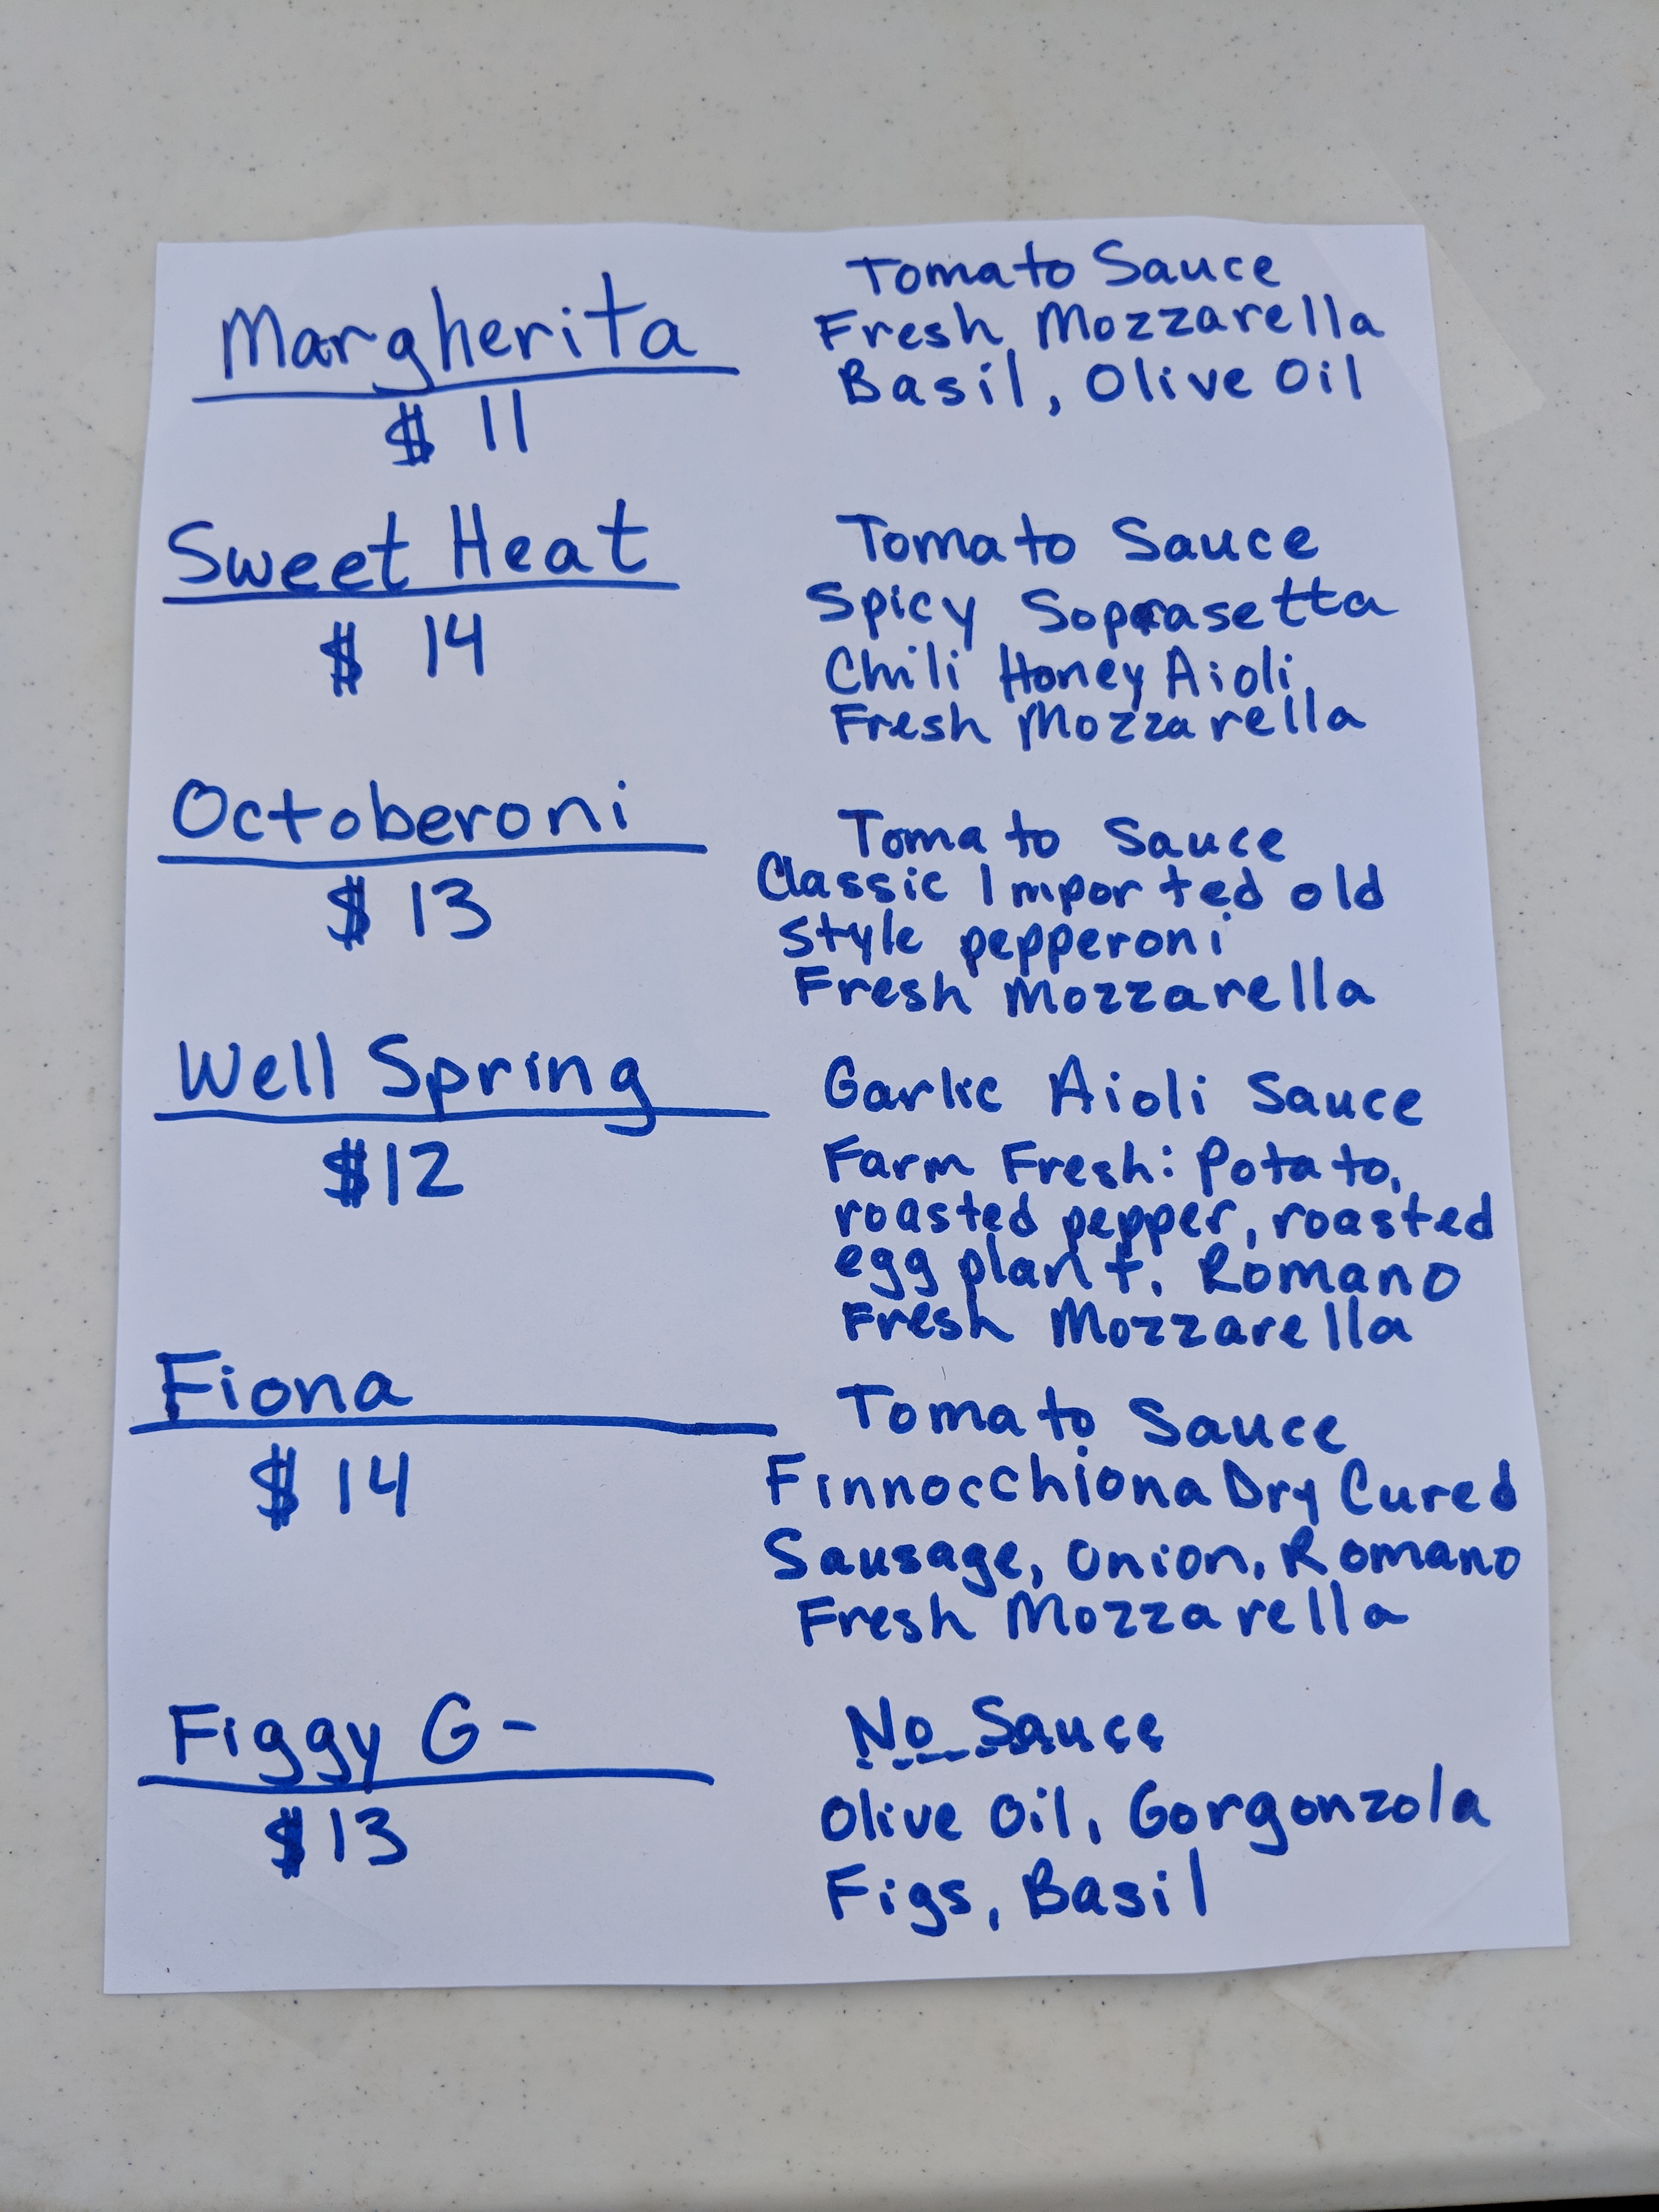 Margherita
$ 11
Tomato Sauce
Fresh Mozzarella
Basil, Olive Oil
Sweet Heat
$ 14
Tomato Sauce
Spicy Soprasetta
Chili Honey Aioli
Fresh Mozzarella
Octoberoni
$ 13
Tomato Sauce
Classic Imported old
style pepperoni
Fresh Mozzarella
Well Spring
$12
Garlic Aioli Sauce
Farm Fresh: Potato,
roasted pepper, roasted
egg plant, Romano
Fresh Mozzarella
Fiona
$ 14
Tomato Sauce
Finnocchiona Dry Cured
Sausage, Onion, Romano
Fresh Mozzarella
Figgy G-
$13
No Sauce
Olive Oil, Gorgonzola
Figs, Basil